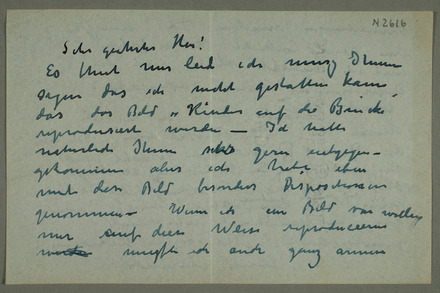 N 2616
Sehr geehrter Herr!
Es thut mir leid ich muss Ihnen
sagen das ich nicht gestatten kann,
das das Bild „Kinder auf die Brücke
reproduciert werden — Ich hätte
natürlich Ihnen sehr gern entgegen-
gekommen aber ich habe eben
mit dem Bild besondere Dispositionen
genommen — Wenn ich ein Bild von
nur auf diese Weise reproduceren
ich auch ganz armen